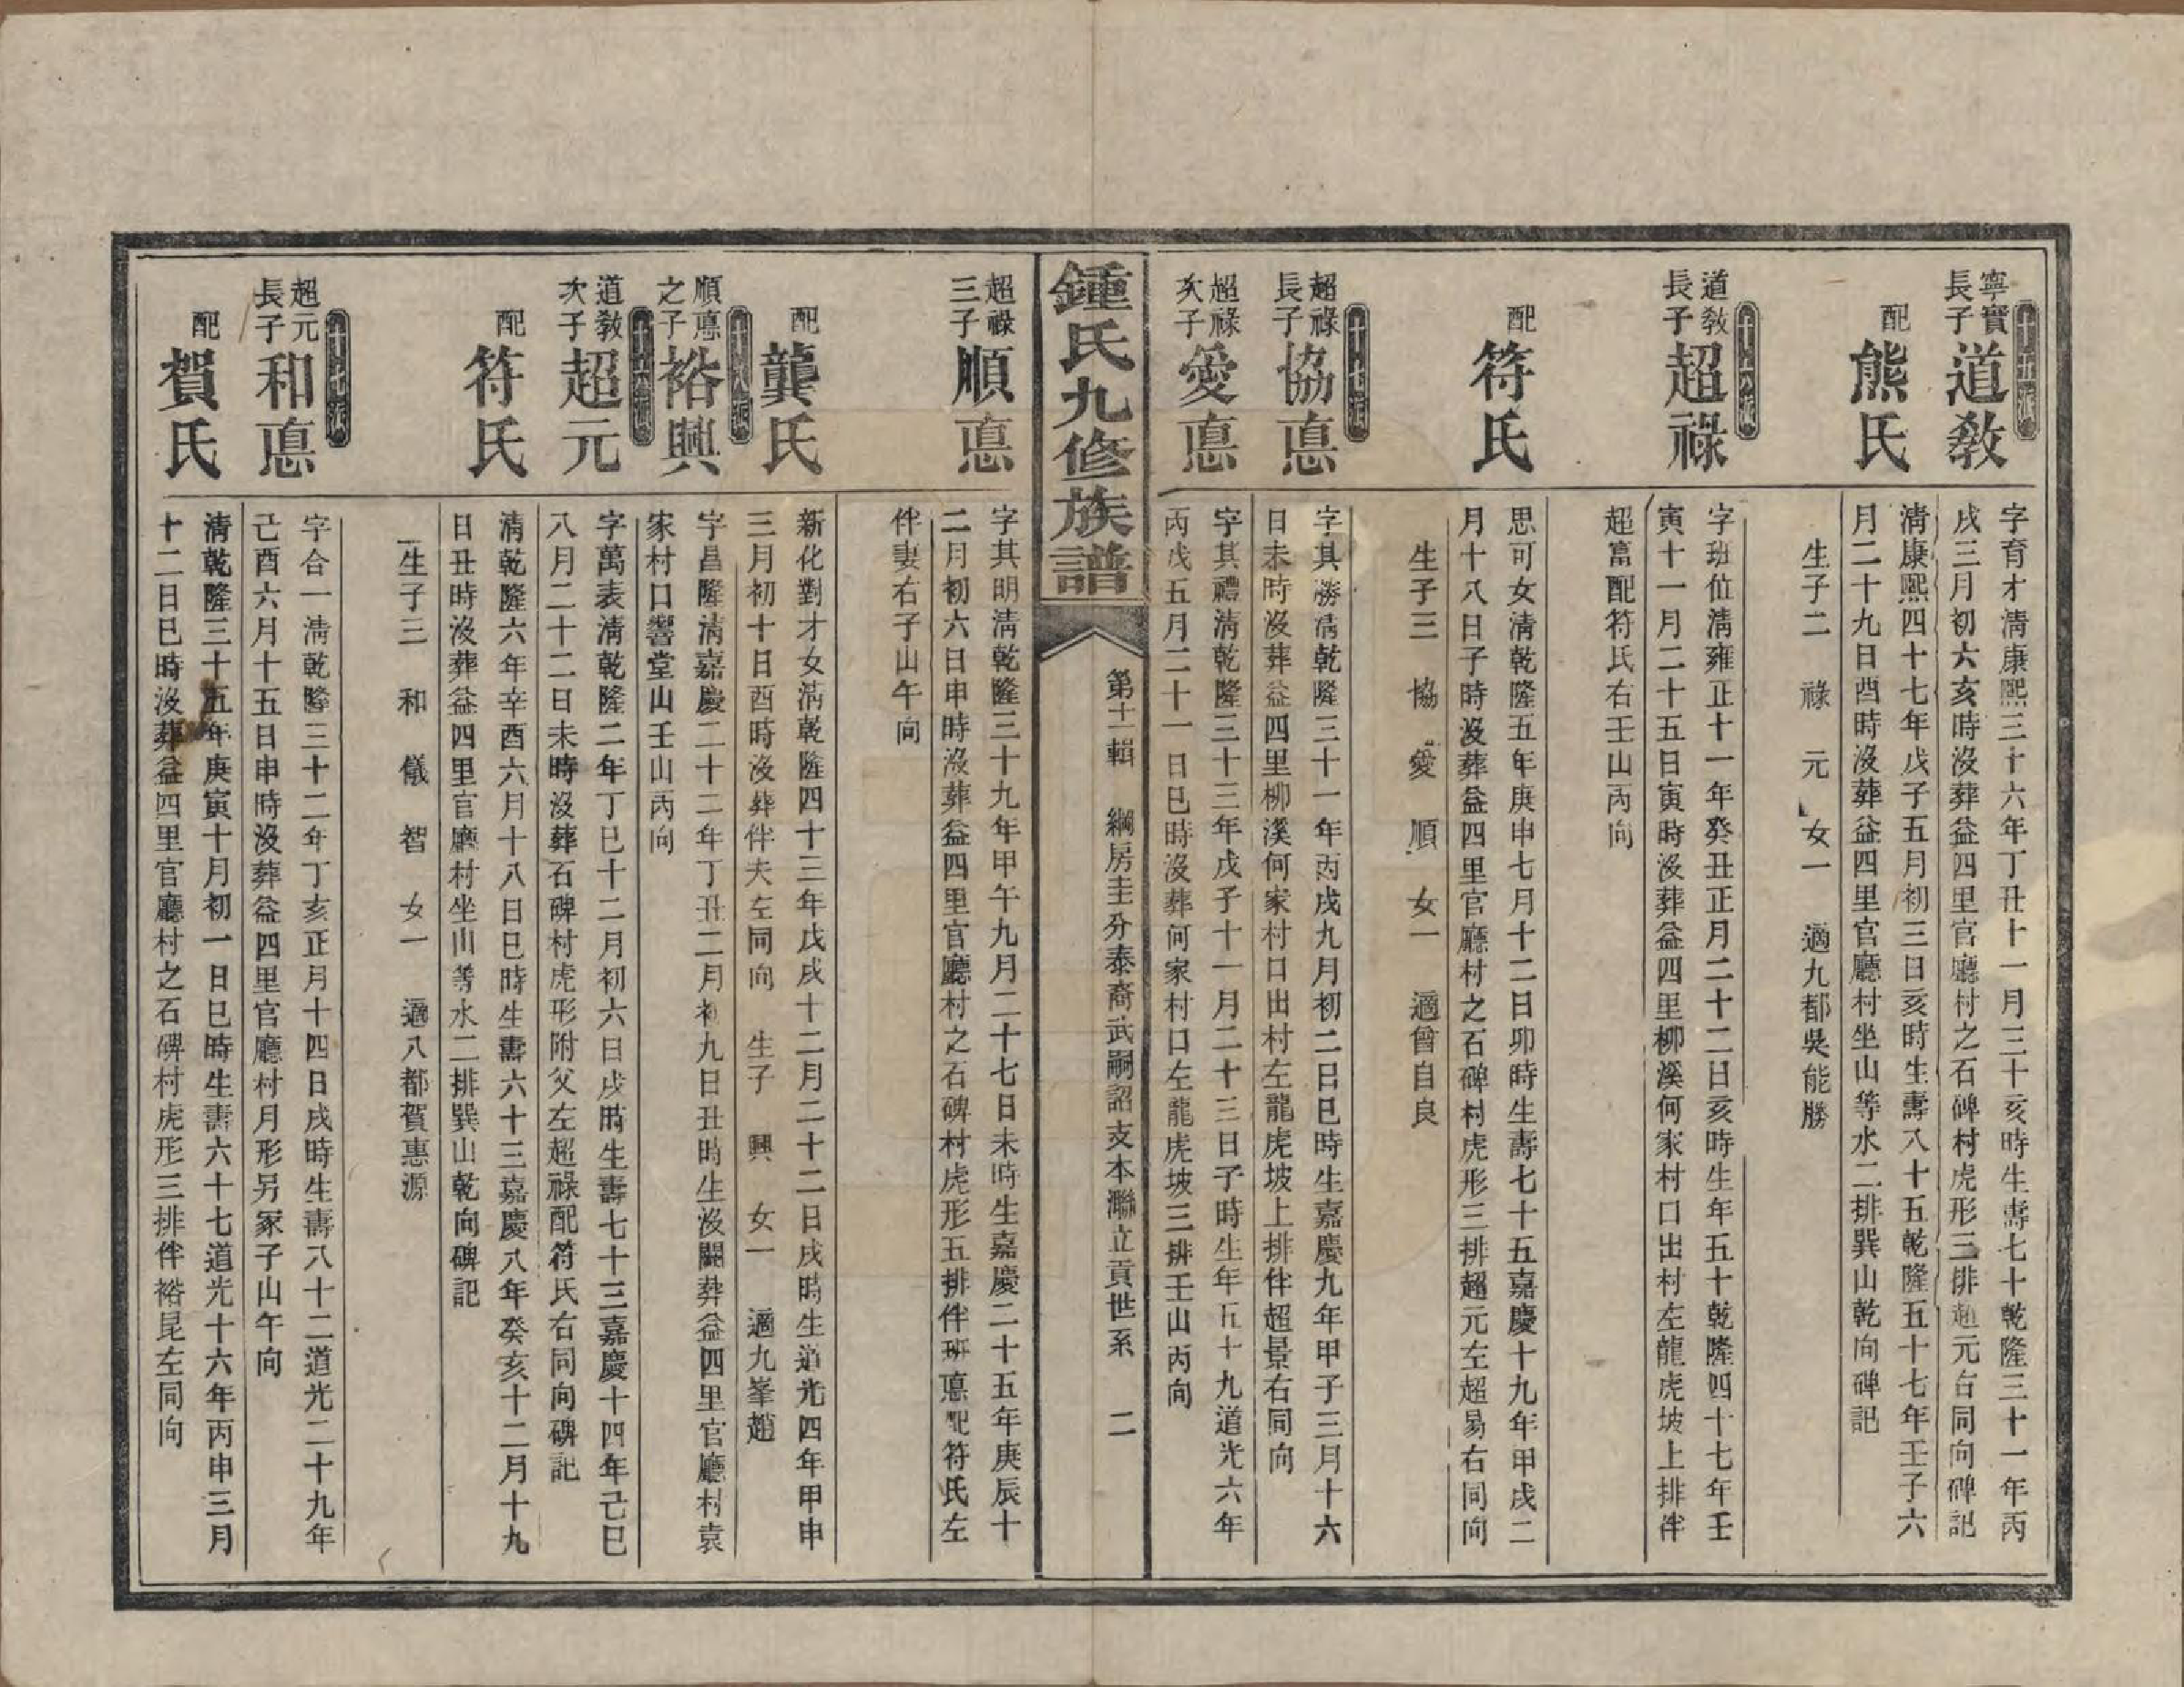 十五派
寧實長子道教
字育才清康熙三十六年丁丑十一月三十亥時生壽七十乾隆三十一年丙
戌三月初六亥時沒葬益四里官廳村之石碑村虎形三排超元右同向碑記
配熊氏
清康熙四十七年戊子五月初三日亥時生壽八十五乾隆五十七年壬子六
月二十九日酉時沒葬益四里官廳村坐山等水二排巽山乾向碑記
生子二 祿 元 女一 適九都吳能勝
十六派
道教長子超祿
字班位清雍正十一年癸丑正月二十二日亥時生年五十乾隆四十七年壬
寅十一月二十五日寅時沒葬益四里柳溪何家村口出村左龍虎坡上排伴
超富配符氏右壬山丙向
配符氏
思可女清乾隆五年庚申七月十二日卯時生壽七十五嘉慶十九年甲戌二
月十八日子時沒葬益四里官廳村之石碑村虎形三排超元左超易右同向
生子三 協 愛 順 女一 適曾自良
十七派
超祿長子協悳
字其勝清乾隆三十一年丙戌九月初二日巳時生嘉慶九年甲子三月十六
日未時沒葬益四里柳溪何家村口出村左龍虎坡上排伴超景右同向
超祿次子愛悳
字其禮清乾隆三十三年戊子十一月二十三日子時生年五十九道光六年
丙戌五月二十一日巳時沒葬何家村口左龍虎坡三排壬山丙向
鍾氏九修族譜
第十一輯 綱房圭分泰裔武嗣詔支本聯立貢世系 二
超祿三子順悳
字其明清乾隆三十九年甲午九月二十七日未時生嘉慶二十五年庚辰十
二月初六日申時沒葬益四里官廳村之石碑村虎形五排伴班悳配符氏左
伴妻右子山午向
配龔氏
新化對才女清乾隆四十三年戊戌十二月二十二日戌時生道光四年甲申
三月初十日酉時沒葬伴夫左同向 生子 興 女一 適九峯趙
十八派
順悳之子裕興
字昌隆清嘉慶二十二年丁丑二月初九日丑時生沒闕葬益四里官廳村袁
家村口響堂山壬山丙向
十六派
道教次子超元
字萬表清乾隆二年丁巳十二月初六日戌時生壽七十三嘉慶十四年己巳
八月二十二日未時沒葬石碑村虎形附父左超祿配符氏右同向碑記
配符氏
清乾隆六年辛酉六月十八日巳時生壽六十三嘉慶八年癸亥十二月十九
日丑時沒葬益四里官廳村坐山等水二排巽山乾向碑記
生子三 和 儀 智 女一 適八都賀惠源
十七派
超元長子和悳
字合一清乾隆三十二年丁亥正月十四日戌時生壽八十二道光二十九年
己酉六月十五日申時沒葬益四里官廳村月形另冢子山午向
配賀氏
清乾隆三十五年庚寅十月初一日巳時生壽六十七道光十六年丙申三月
十二日巳時沒葬益四里官廳村之石碑村虎形三排伴裕昆左同向